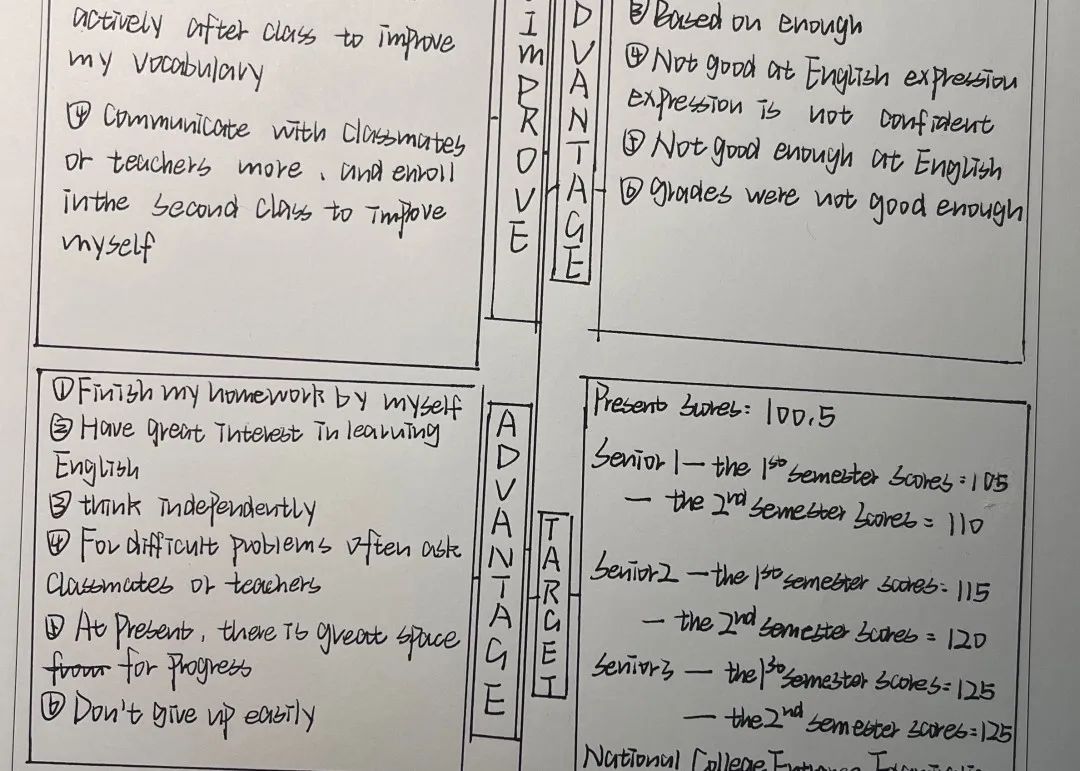 actively after class to improve
my vocabulary
④ Communicate with classmates
or teachers more, and enroll
in the second class to improve
myself
IMPROVE
DVANTAGE
③ Based on enough
④ Not good at English expression
expression is not confident
⑤ Not good enough at English
⑥ grades were not good enough
① Finish my homework by myself
② Have great interest in learning
English
③ think independently
④ For difficult problems often ask
classmates or teachers
⑤ At present, there is great space
for progress
⑥ Don't give up easily
ADVANTAGE
TARGET
Present scores: 100.5
Senior 1 — the 1st semester scores: 105
— the 2nd semester scores = 110
Senior 2 — the 1st semester scores: 115
— the 2nd semester scores = 120
Senior 3 — the 1st semester scores: 125
— the 2nd semester scores: 125
National College Entrance